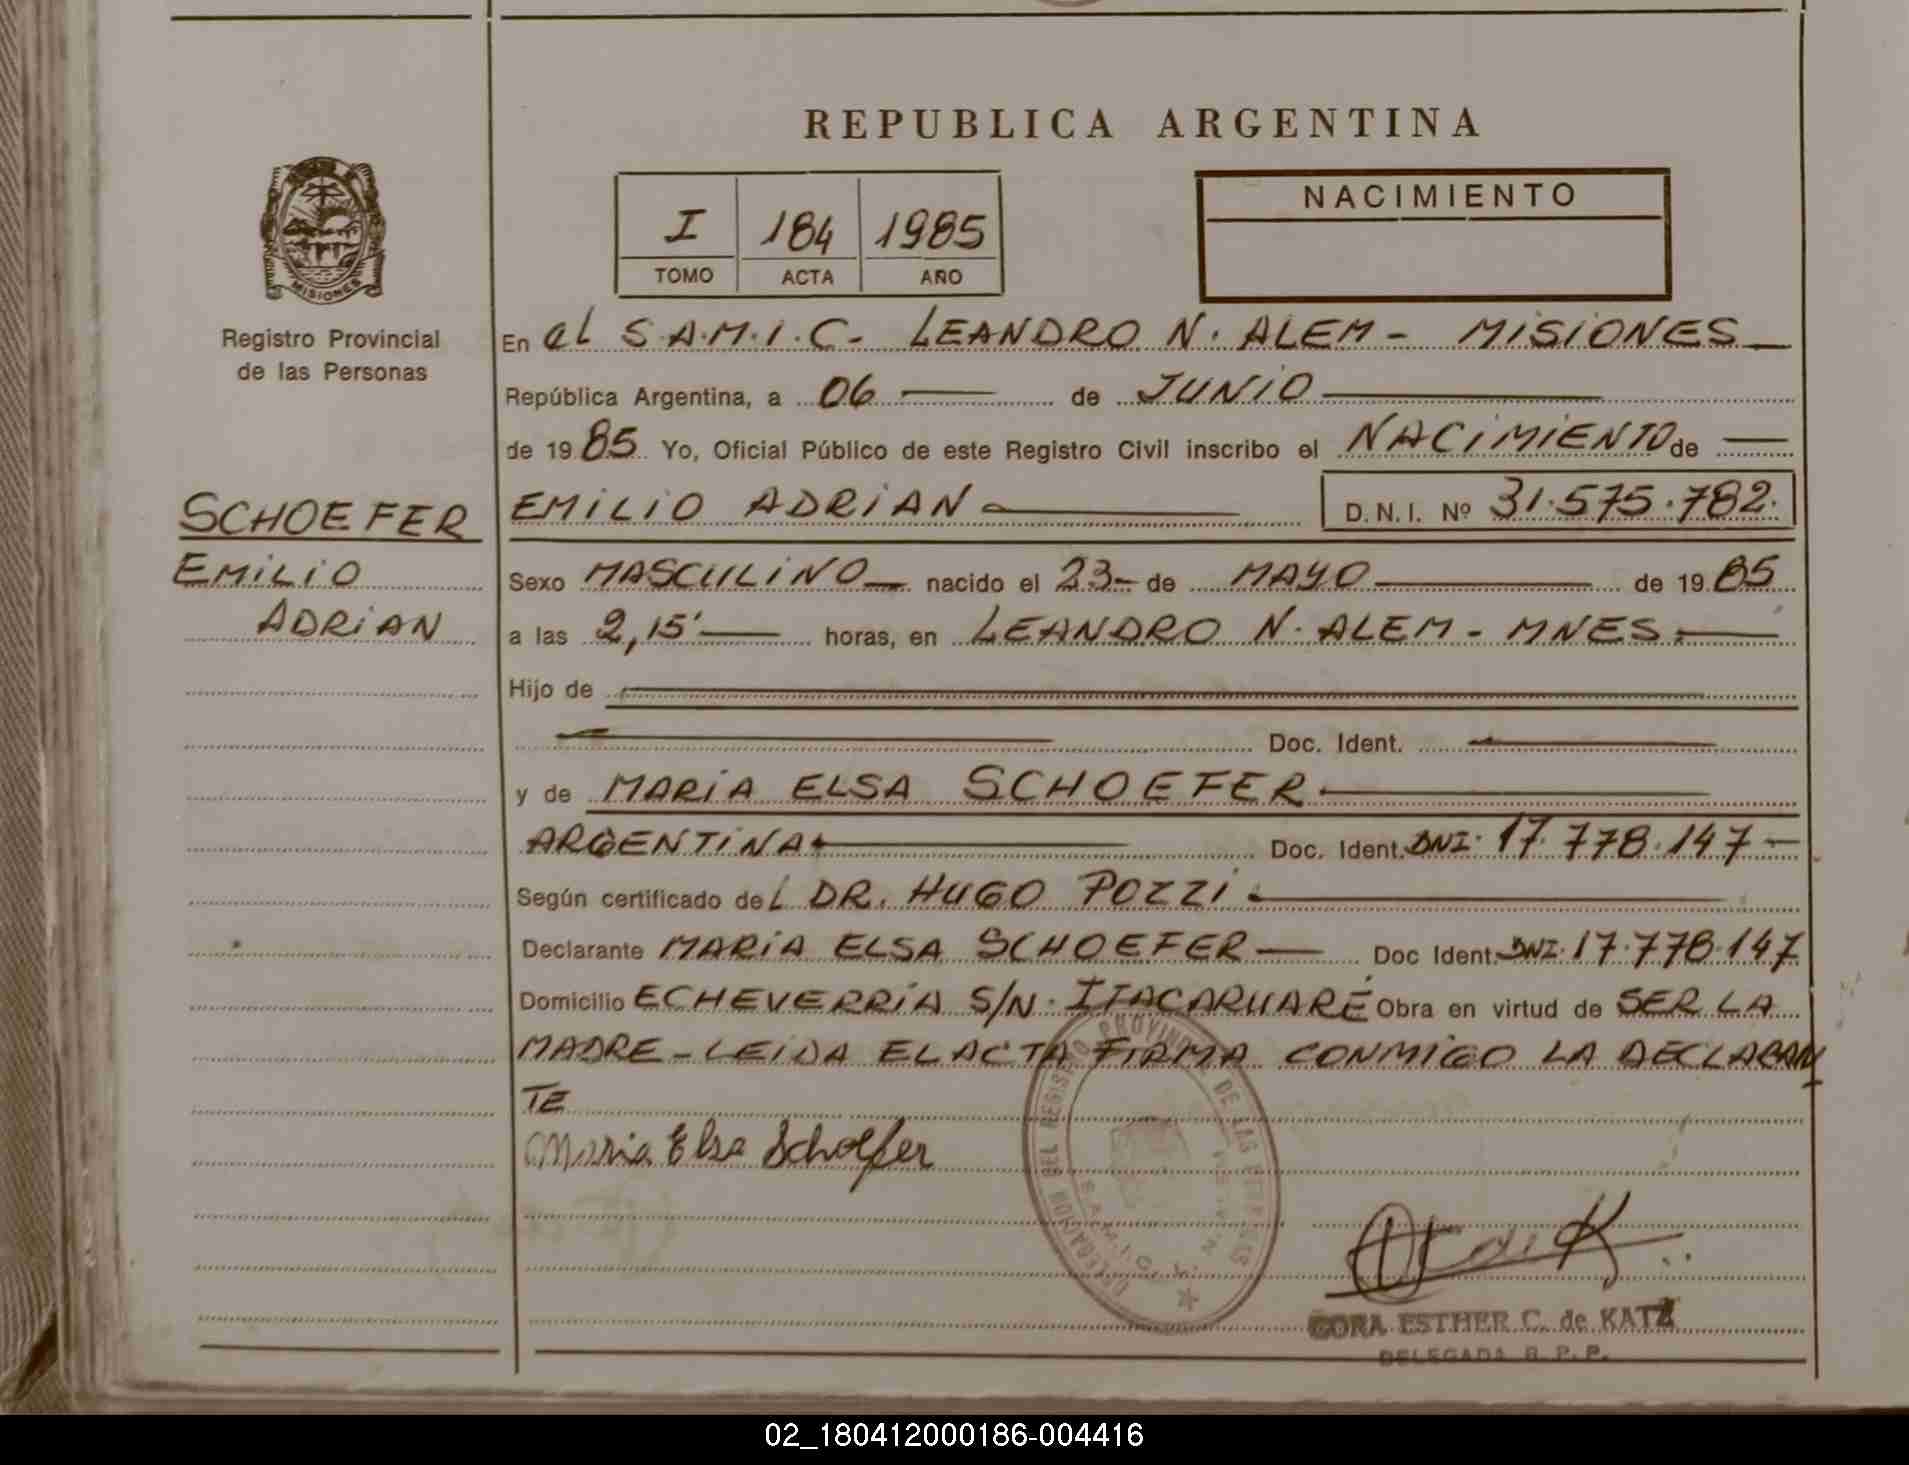 REPUBLICA ARGENTINA
MISIONES
Registro Provincial
de las Personas
I 184 1985
TOMO ACTA AÑO
NACIMIENTO
En el S.A.M.I.C- LEANDRO N. ALEM - MISIONES
República Argentina, a 06 de JUNIO
de 1985 Yo, Oficial Público de este Registro Civil inscribo el NACIMIENTO de
SCHOEFER
EMILIO
ADRIAN
EMILIO ADRIAN D.N.I. Nº 31.575.782.
Sexo MASCULINO nacido el 23- de MAYO de 1985
a las 2,15' horas, en LEANDRO N. ALEM - MNES.
Hijo de
Doc. Ident.
y de MARIA ELSA SCHOEFER
ARGENTINA Doc. Ident. DNI. 17.778.147
Según certificado del DR. HUGO POZZI
Declarante MARIA ELSA SCHOEFER Doc Ident. DNI. 17.778.147
Domicilio ECHEVERRIA S/N. ITACARUARÉ Obra en virtud de SER LA
MADRE - LEIDA EL ACTA FIRMA CONMIGO LA DECLARAN
TE
Maria Elsa Schoefer
DELEGACION DEL REGISTRO PROVINCIAL DE LAS PERSONAS
CORA ESTHER C. de KATZ
DELEGADA R.P.P.
02_180412000186-004416